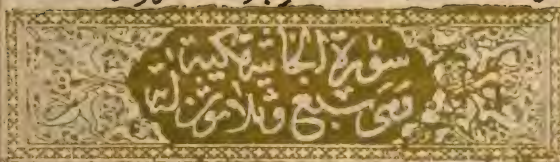 سورة الجاثية مكية
وهى سبع وثلاثون اية